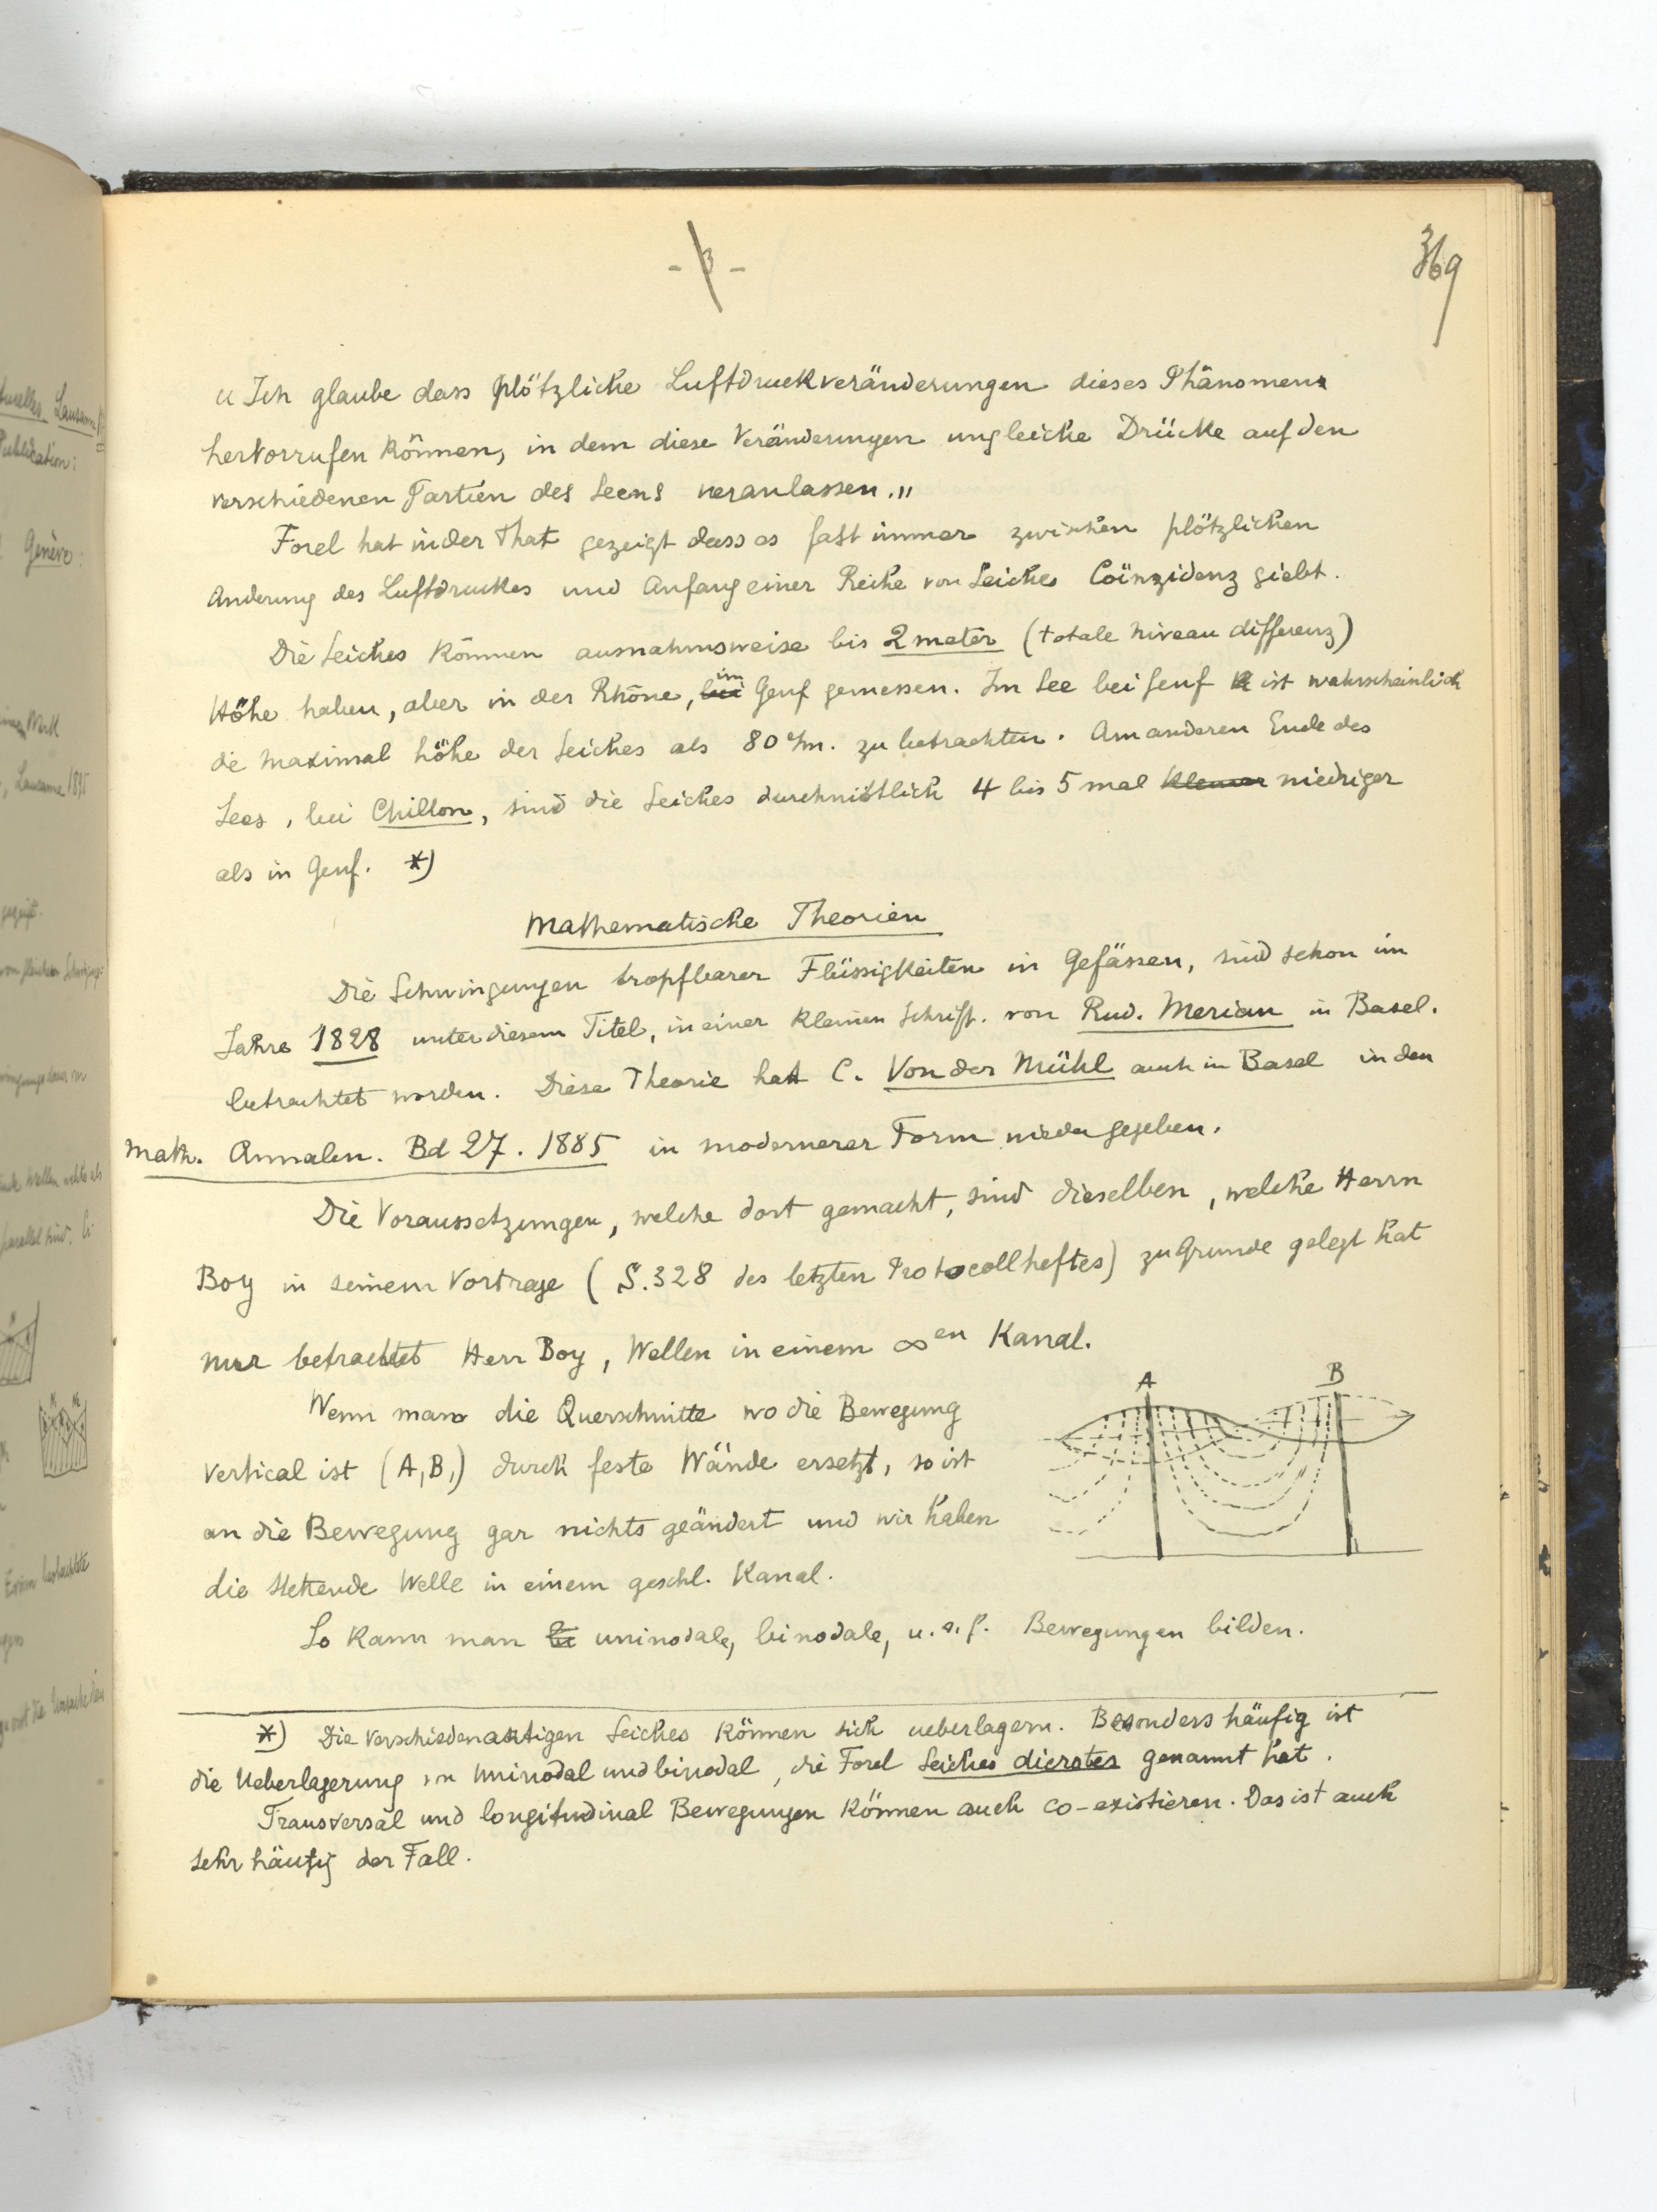 - 3 -
369
„Ich glaube dass plötzliche Luftdruckveränderungen dieses Phänomen
hervorrufen können, in dem diese Veränderungen ungleiche Drücke auf den
verschiedenen Partien des Seens veranlassen."
Forel hat in der That gezeigt dass es fast immer zwischen plötzlichen
Anderung des Luftdruckes und Anfang einer Reihe von Seiches Coïnzidenz giebt.
Die Seiches können ausnahmsweise bis 2 meter (totale Niveau differenz)
Höhe haben, aber in der Rhône, bei im Genf gemessen. Im See bei Genf ist wahrscheinlich
die Maximal höhe der Seiches als 80 c/m. zu betrachten. Am anderen Ende des
Sees, bei Chillon, sind die Seiches durchnittlich 4 bis 5 mal kleiner niedriger
als in Genf. *)
Mathematische Theorien
Die Schwingungen tropfbarer Flüssigkeiten in Gefässen, sind schon im
Jahre 1828 unter diesem Titel, in einer kleinen Schrift. von Rud. Merian in Basel.
betrachtet worden. Diese Theorie hat C. Von der Mühl auch in Basel in den
Math. Annalen. Bd 27. 1885 in modernerer Form niedergegeben.
Die Voraussetzungen, welche dort gemacht, sind dieselben, welche Herrn
Boy in seinem Vortrage (S. 328 des letzten Protocollheftes) zu Grunde gelegt hat
nur betrachtet Herr Boy, Wellen in einem ∞en Kanal.
Wenn man die Querschnitte wo die Bewegung
vertical ist (A, B,) durch feste Wände ersetzt, so ist
an die Bewegung gar nichts geändert und wir haben
die stehende Welle in einem geschl. Kanal.
A B
So kann man bi uninodale, binodale, u.s.f. Bewegungen bilden.
*) Die verschiedenartigen Seiches können sich ueberlagern. Besonders häufig ist
die Ueberlagerung von Uninodal und binodal, die Forel Seiches dicrotes genannt hat.
Transversal und longitudinal Bewegungen können auch co-existieren. Das ist auch
sehr häufig der Fall.